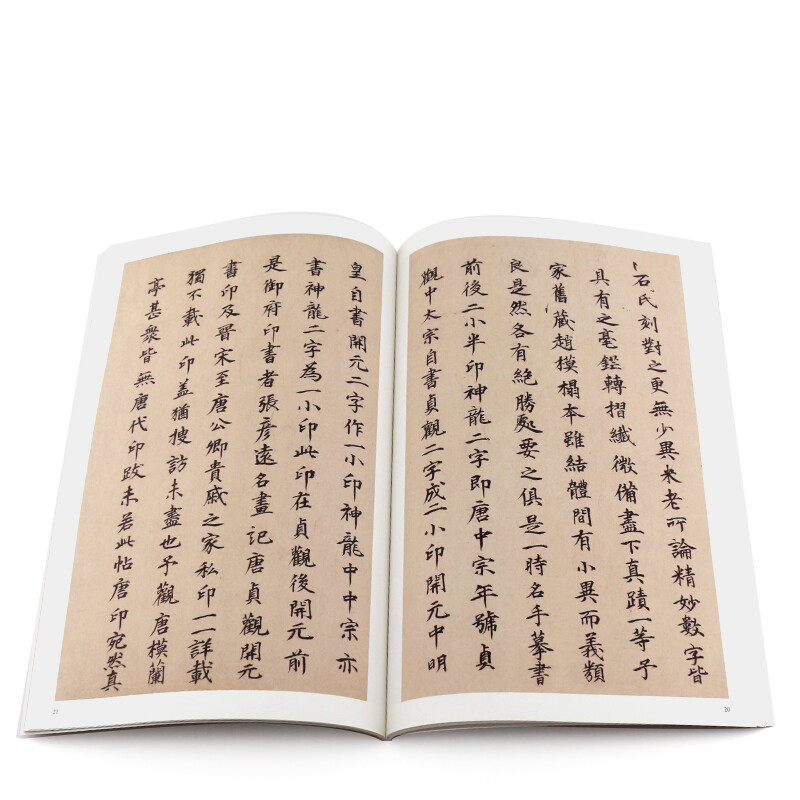 石氏刻對之更無少異米老所論精妙數字皆
具有之毫鋩轉摺纖微備盡下真蹟一等予
家舊藏趙模榻本雖結體間有小異而義類
良是然各有絶勝處要之俱是一時名手摹書
前後二小半印神龍二字即唐中宗年號貞
觀中太宗自書貞觀二字成二小印開元中明
20
皇自書開元二字作一小印神龍中中宗亦
書神龍二字為一小印此印在貞觀後開元前
是御府印書者張彦遠名畫記唐貞觀開元
書印及晉宋至唐公卿貴戚之家私印一一詳載
獨不載此印盖猶搜訪未盡也予觀唐模蘭
亭甚衆皆無唐代印跋未若此帖唐印宛然真
21